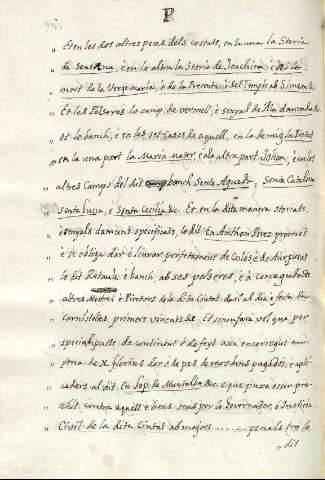 P
„ E en los dos altres peces dels costats, en la una la Storia
„ de Senta Ana, è en la altra la Storia de Joachim, è de la
„ mort de la Verge Maria, è de la Presentació del Temple ab Simeon &
„ Et les Polseres lo camp de vermell, è senyal de Ala daurada &
„ et lo banch, è en les set cases de aquell, en lo de mig la Pietat
„ en la una part la Maria Mater, è de altra part Johan, è en los
„ altres Camps del dit banch Senta Agueda, Senta Catalina
„ Senta Lucia, è Senta Cecilia &c. Et en la dita manera storiats
„ è senyals damunt specificats, lo dit En Anthon Perez promet
„ è se obliga dar è liurar perfetament de Colos, è de Aur posat
„ lo dit Retaule è banch, ab ses polseres, è à coneguda de
„ altres Mestres è Pintors de la dita Ciutat daci al dia è festa de
„ Carnistoltes primers vinents &c. Et si no farà vol que per
„ special patte de continent è de feyt axa encorregut en
„ pena de X. florins dor è de pes de sos bens pagadors, è apli-
„ cadors al dit En Jop. de Muntalba &c. è que puixa esser pro-
„ cehit contra aquell è bens seus per lo Governador, è Justicia
„ Civil de la dita Ciutat ab majors ..... per tals tro lo
„ dit